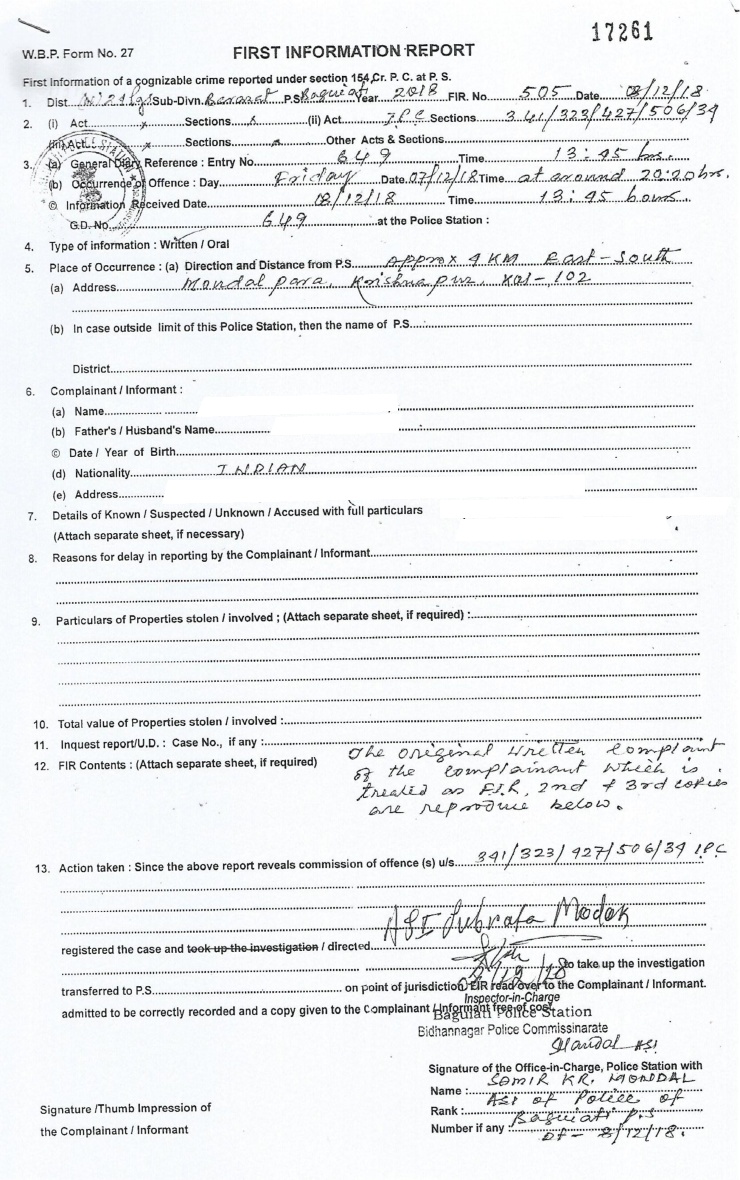 17261
W.B.P. Form No. 27
FIRST INFORMATION REPORT
First Information of a cognizable crime reported under section 154, Cr. P. C. at P. S.
1. Dist. Sub-Divn. Barasat P.S. Baguiati Year 2018 FIR. No. 505 Date 08/12/18
2. (i) Act x Sections x (ii) Act IPC Sections 341/323/427/506/34
(iii) Act x Sections x Other Acts & Sections
3. (a) General Diary Reference : Entry No. 649 Time 13:45 hrs.
(b) Occurrence of Offence : Day Friday Date 07/12/18 Time at around 20:20 hrs.
© Information Received Date 08/12/18 Time 13:45 hours
G.D. No. 649 at the Police Station :
4. Type of information : Written / Oral
5. Place of Occurrence : (a) Direction and Distance from P.S. Approx 4 KM East-South
(a) Address Mondal para, Krishnapur, Kol-102
(b) In case outside limit of this Police Station, then the name of P.S.
District
6. Complainant / Informant :
(a) Name
(b) Father's / Husband's Name
© Date / Year of Birth
(d) Nationality INDIAN
(e) Address
7. Details of Known / Suspected / Unknown / Accused with full particulars
(Attach separate sheet, if necessary)
8. Reasons for delay in reporting by the Complainant / Informant
9. Particulars of Properties stolen / involved ; (Attach separate sheet, if required) :
10. Total value of Properties stolen / involved :
11. Inquest report/U.D. : Case No., if any :
12. FIR Contents : (Attach separate sheet, if required) The original written complaint
of the complainant which is
treated as F.I.R, 2nd & 3rd copies
are reproduce below.
13. Action taken : Since the above report reveals commission of offence (s) u/s 341/323/427/506/34 IPC
ASI Subrata Modak
registered the case and took up the investigation / directed
8/12/18 to take up the investigation
transferred to P.S. on point of jurisdiction FIR read over to the Complainant / Informant.
Inspector-in-Charge
admitted to be correctly recorded and a copy given to the Complainant / Informant free of cost
Baguiati Police Station
Bidhannagar Police Commissinarate
Mandal ASI
Signature of the Office-in-Charge, Police Station with
Name : SAMIR KR. MONDAL
Rank : ASI of Police of
Number if any : Baguiati P.S
Dt- 8/12/18.
Signature /Thumb Impression of
the Complainant / Informant